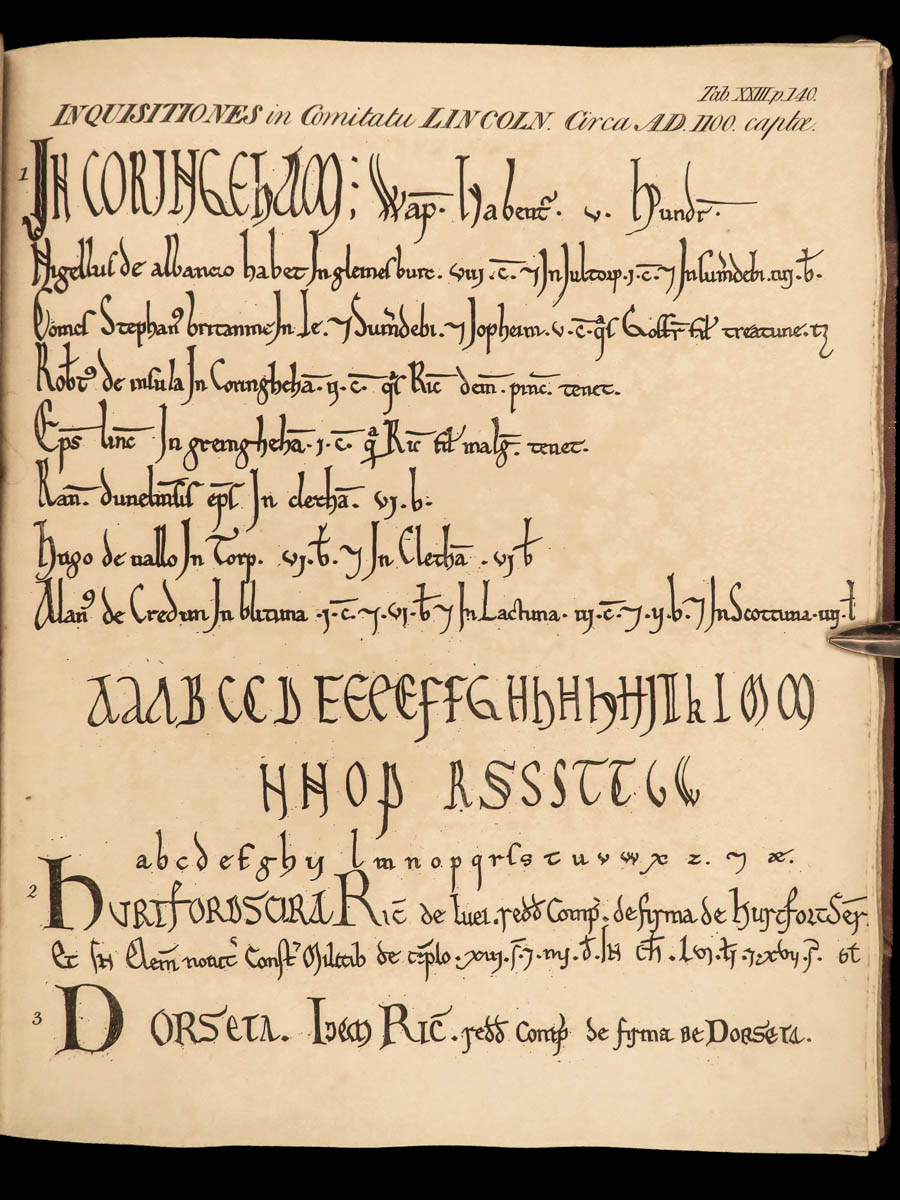 Tab. XXIII. p. 140.
INQUISITIONES in Comitatu LINCOLN. Circa AD. 1100. captæ.
1 IN CORINGEHAM; Wap̄. Habent̄. v. Hundr̄.
Nigellus de albaneio habet In glemesburc. viii. c̄. ⁊ In Jultorp. i. c̄. ⁊ In sum̄debi. iiii. b̄.
Comes Stephan⁹ britannie In Le. ⁊ Sum̄debi. ⁊ Jopheim. v. c̄. qͣs Goffr̄ fil̄ treatune. t
Rob̄t⁹ de insula In Coringhehā. ii. c̄. qͣs Ric̄ dem̄. pinc̄. tenet.
Ep̄s linc̄ In greinghehā. i. c̄. qͣ Ric̄ fil̄ malḡ. tenet.
Ran̄. dunelmsis ep̄s In clethā. vi. b.
Hugo de uallo In Torp. vi. b̄. ⁊ In Clethā. vi b̄
Alan⁹ de Credun In blituna. i. c̄. ⁊. vi. b̄ ⁊ In Lactuna. iii. c̄. ⁊. ii. b. ⁊ In Scottuna. iiii. b̄
A A A B C C D E E E E F F G H h H h H I I k L M M
N N O P R S S S S T T U W
a b c d e f g h ij l m n o p q r ſ s t u v w x z. ⁊ æ.
2 HURTFORDSCIRA Ric̄ de luci. redd Comp̄. de firma de hurtfortSer̄.
Et IN Elem̄ Const̄ Militib de tēplo. xiii. s̄. ⁊. iiii. d̄. IN th̄. lvi. li. ⁊. xvii. s̄. et
3 DORSETA. Idem RIC̄. redd Comp̄ de firma DE DORSETA.